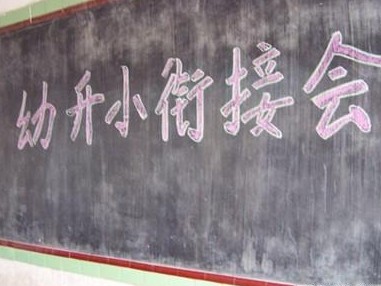 幼升小衔接会